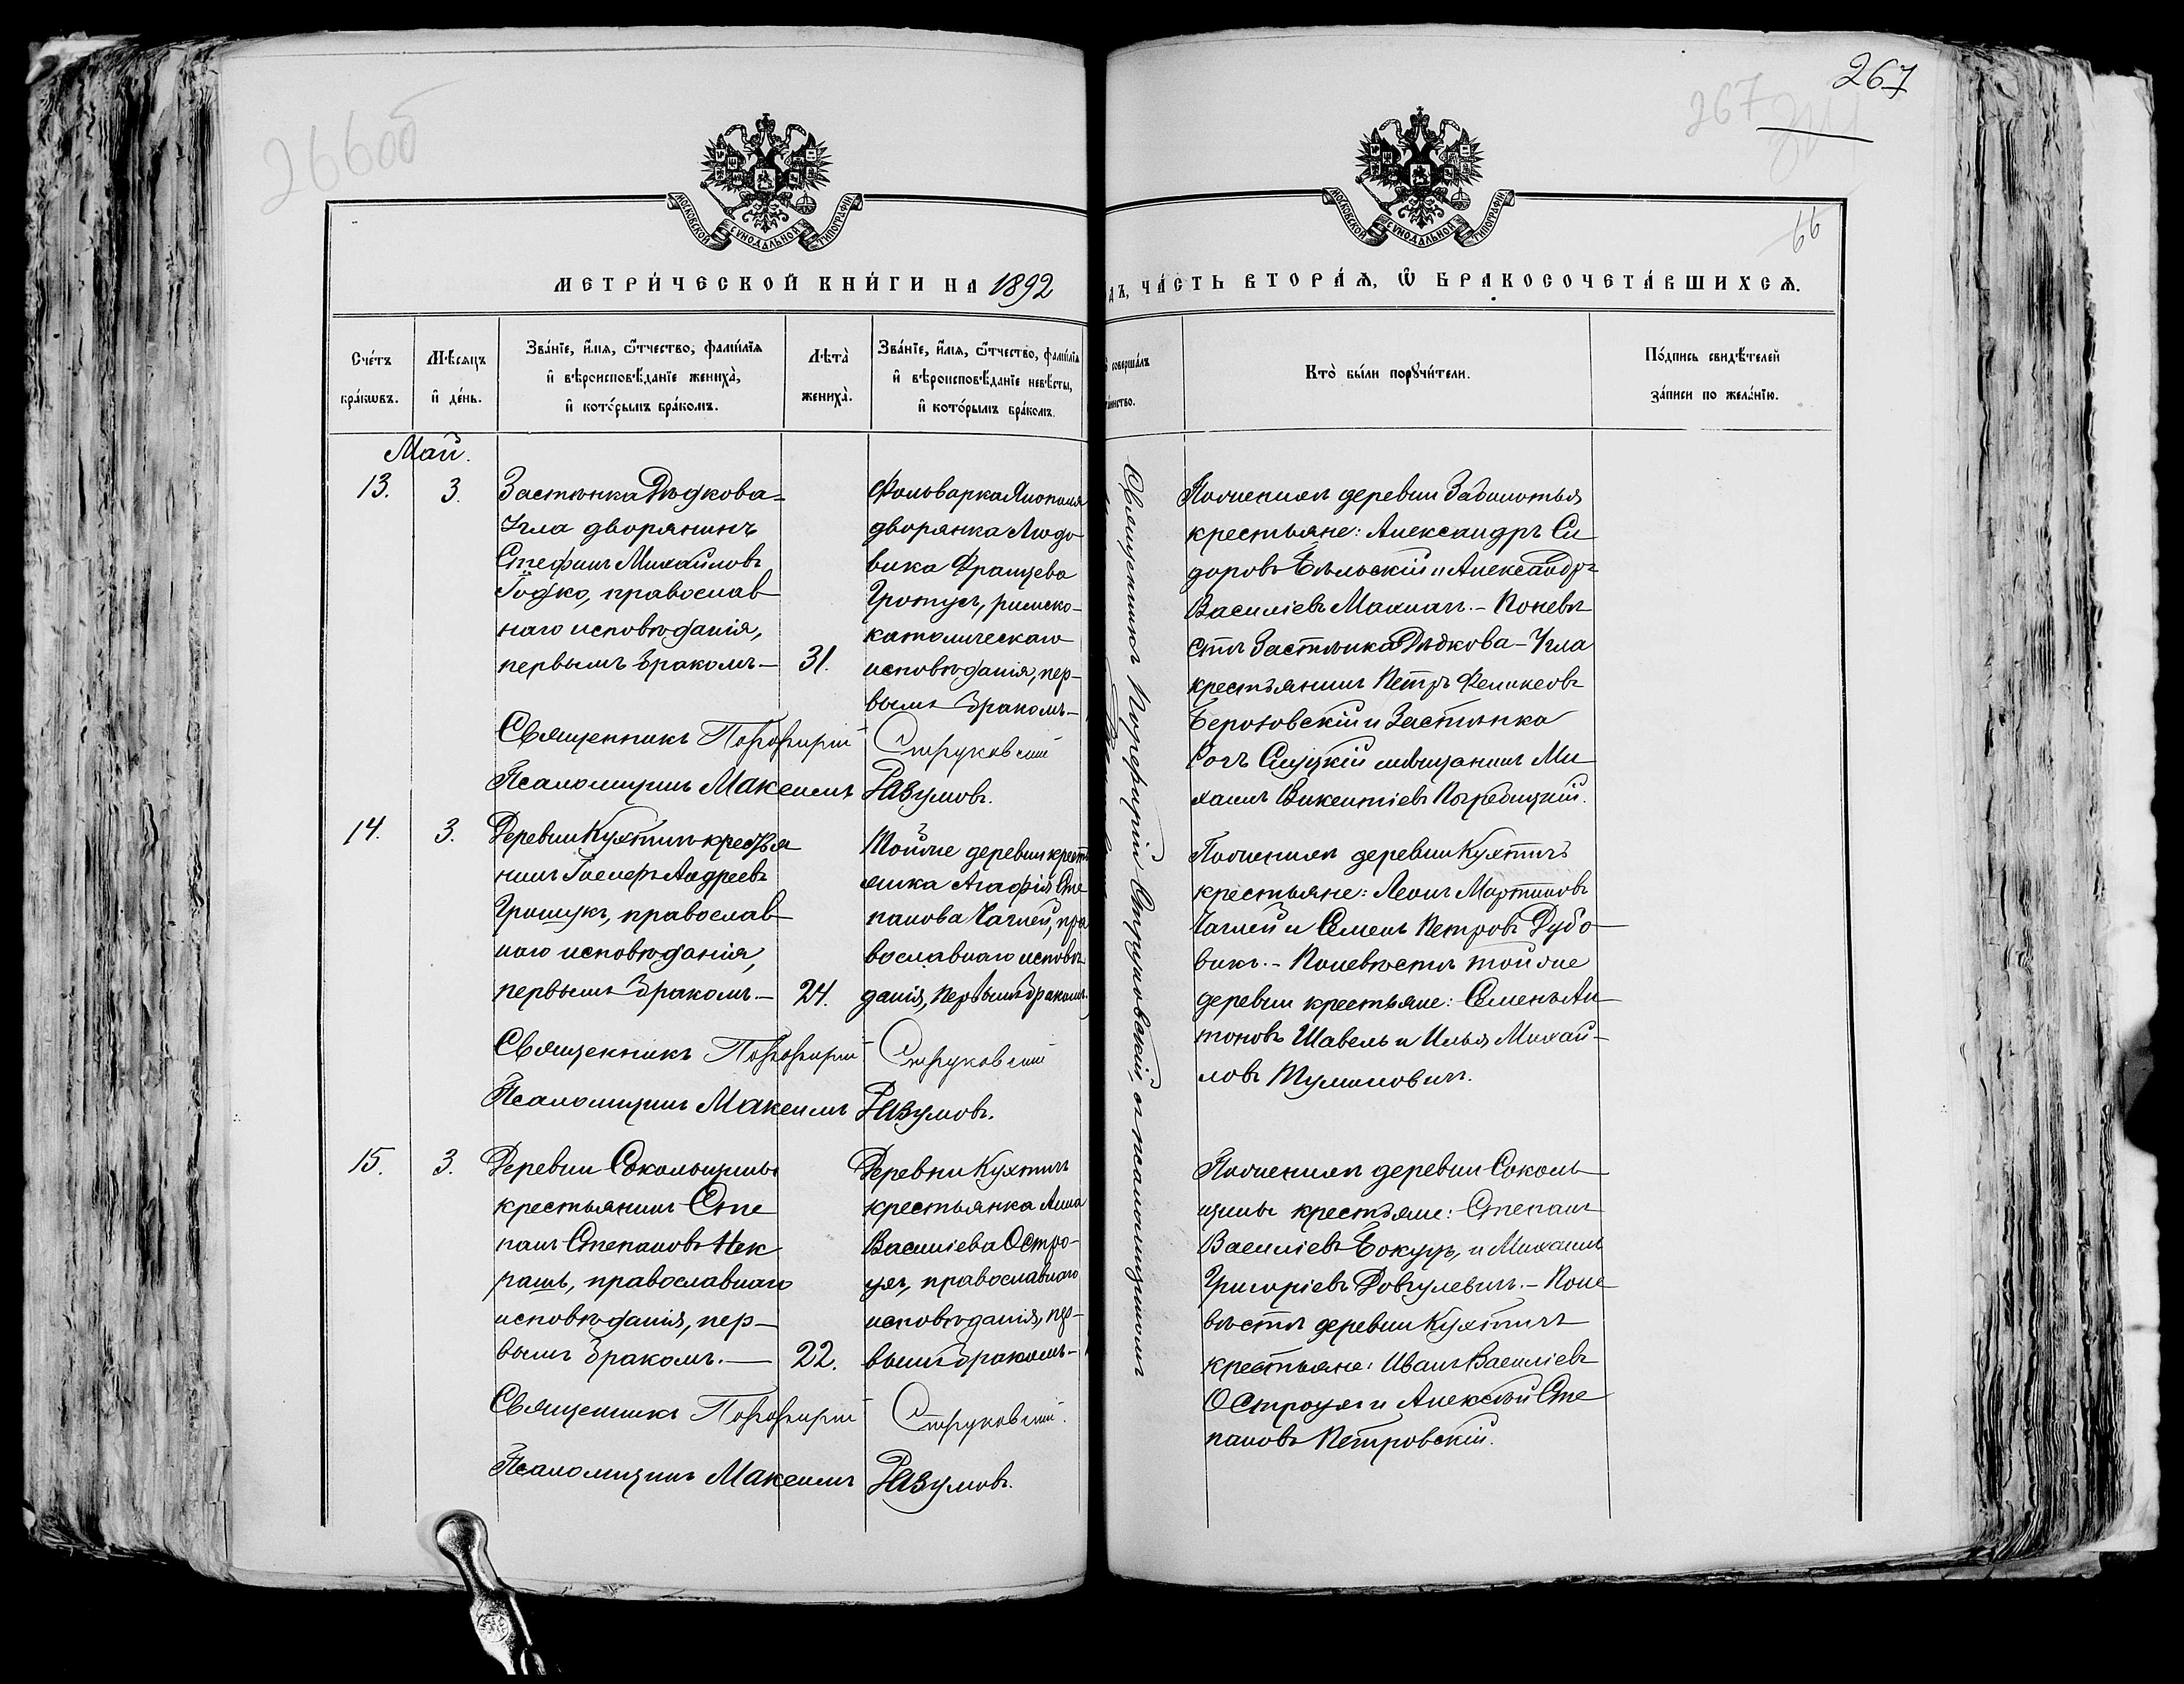 266об
МОСКОВСКОЙ СѴНОДАЛЬНОЙ ТИПОГРАФІИ.
МЕТРИ́ЧЕСКОЙ КНИ́ГИ НА 1892
Сче́тъ бра́кωвъ.
Мѣ́сяцъ и҆ де́нь.
Зва́нїе, и҆́мя, ѻ҆́тчество, фами́лїя
и҆ вѣроисповѣ́данїе жениха̀,
и҆ кото́рымъ бра́комъ.
Лѣта̀ жениха̀.
Зва́нїе, и҆́мя, ѻ҆́тчество, фами́лїя
и҆ вѣроисповѣ́данїе невѣ́сты,
и҆ кото́рымъ бра́комъ.
Май.
13.
3.
Застѣнка Дѣдкова-
Угла дворянинъ
Стефанъ Михайловъ
Годко, православ
наго исповѣданія,
первымъ бракомъ-
31.
Фольварка
дворянка Людо
вика Францева
римско-
католическаго
исповѣданія, пер-
вымъ бракомъ-
Священникъ Порфирій Струковскій
Псаломщикъ Максимъ Разумовъ.
14.
3.
Деревни Кухтичъ крестья
нинъ Іосифъ Андреевъ
Грищукъ, православ
наго исповѣданія,
первымъ бракомъ.-
24.
Тойже деревни крестъ
янка Агафія Сте
панова Чаглей, пра
вославнаго исповѣ
данія, первымъ бракомъ.
Священникъ Порфирій Струковскій
Псаломщикъ Максимъ Разумовъ.
15.
3.
Деревни Сокольщины
крестьянинъ Сте
панъ Степановъ Нек
рашъ, православнаго
исповѣданія, пер-
вымъ бракомъ.-
22.
Деревни Кухтичъ
крестьянка Анна
Васильева Остро-
ухъ, православнаго
исповѣданія, пер-
вымъ бракомъ-
Священникъ Порфирій Струковскій.
Псаломщикъ Максимъ Разумовъ.
267
267
66
МОСКОВСКОЙ СѴНОДАЛЬНОЙ ТИПОГРАФІИ.
ДЪ, ЧА́СТЬ ВТОРА́Я, Ѽ БРАКОСОЧЕТА́ВШИХСЯ.
соверша́лъ
та́инство.
Кто̀ бы́ли порꙋчи́тели.
По́дпись свидѣ́телей
за́писи по жела́нїю.
Священникъ Порфирій Струковскій, съ псаломщикомъ
По женихѣ деревни Заболотья
крестьяне: Александръ Си
доровъ Бѣльскій и Александръ
Василіевъ Махначъ.- По невѣ
стѣ Застѣнка Дѣдкова-Угла
крестьянинъ Петръ Феликсовъ
Березовскій и Застѣнка
Рогъ Слуцкій мѣщанинъ Ми
хаилъ Викентіевъ
По женихѣ деревни Кухтичъ
крестьяне: Леонъ Мартиновъ
Чаглей и Семенъ Петровъ Дубо
викъ.- По невѣстѣ той же
деревни крестьяне: Семенъ Ан
тоновъ Шавель и Илья Михай-
ловъ Тумиловичъ.
По женихѣ деревни Соколь
щины крестьяне: Степанъ
Василіевъ Бокуцъ, и Михаилъ
Григоріевъ Довгулевичъ.- По не
вѣстѣ деревни Кухтичъ
крестьяне: Иванъ Василіевъ
Остроухъ и Алексѣй Сте
пановъ Петровскій.